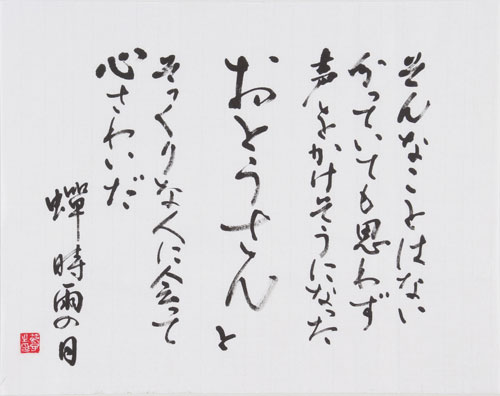 そんなことはない
分っていても思わず
声をかけそうになった
おとうさんと
そっくりな人に会って
心さわいだ
蟬時雨の日